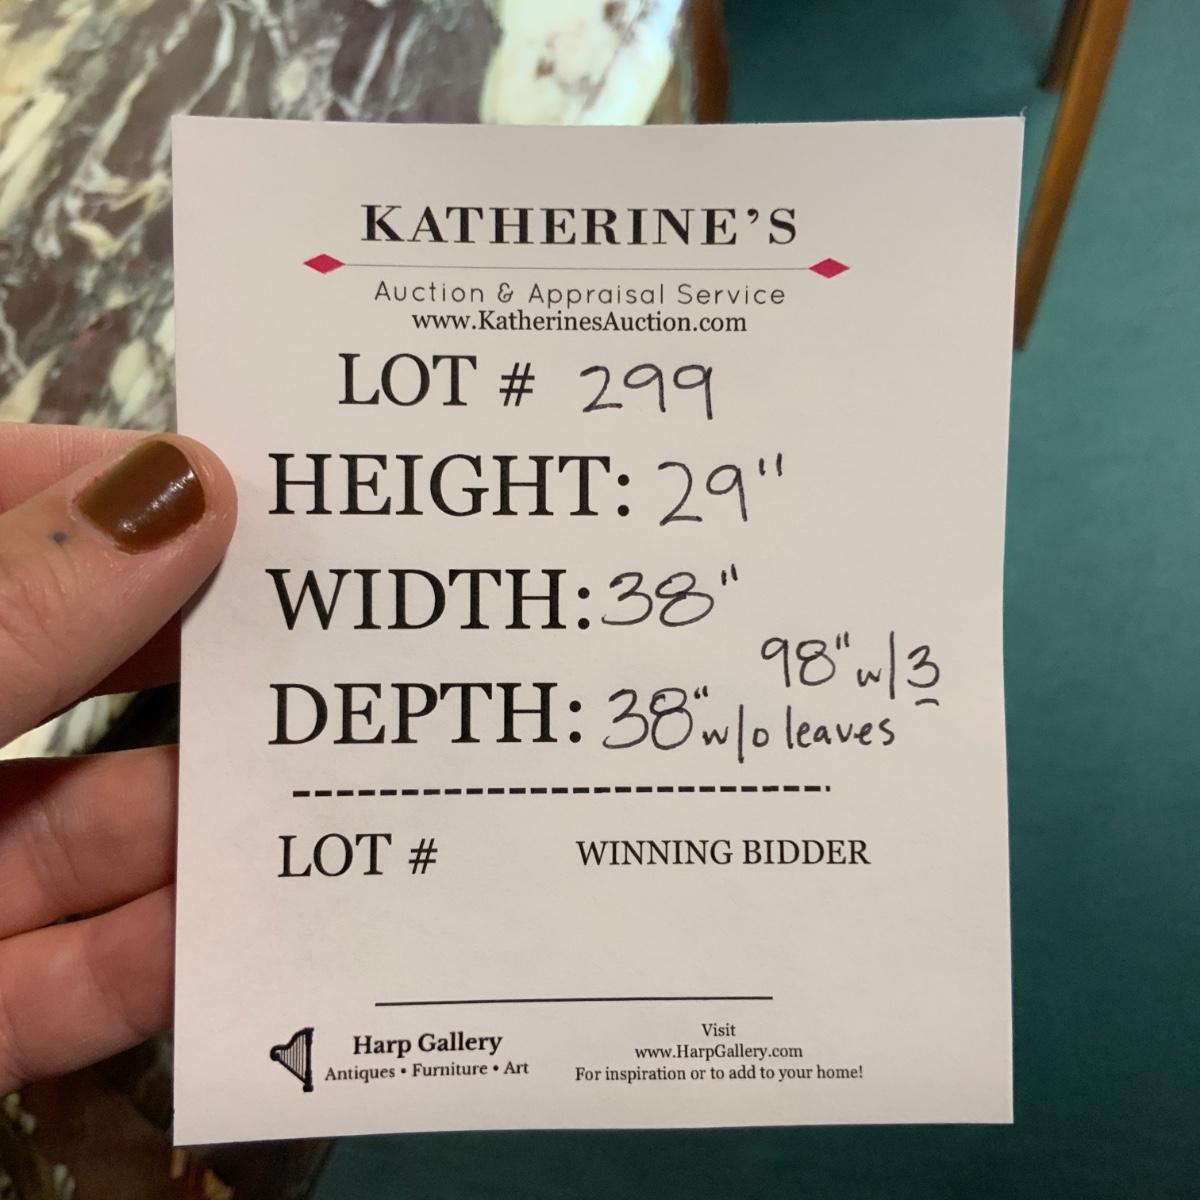 KATHERINE'S
Auction & Appraisal Service
www.KatherinesAuction.com
LOT # 299
HEIGHT: 29"
WIDTH: 38"
98" w/3
DEPTH: 38" w/o leaves
LOT # WINNING BIDDER
Harp Gallery
Antiques • Furniture • Art
Visit
www.HarpGallery.com
For inspiration or to add to your home!